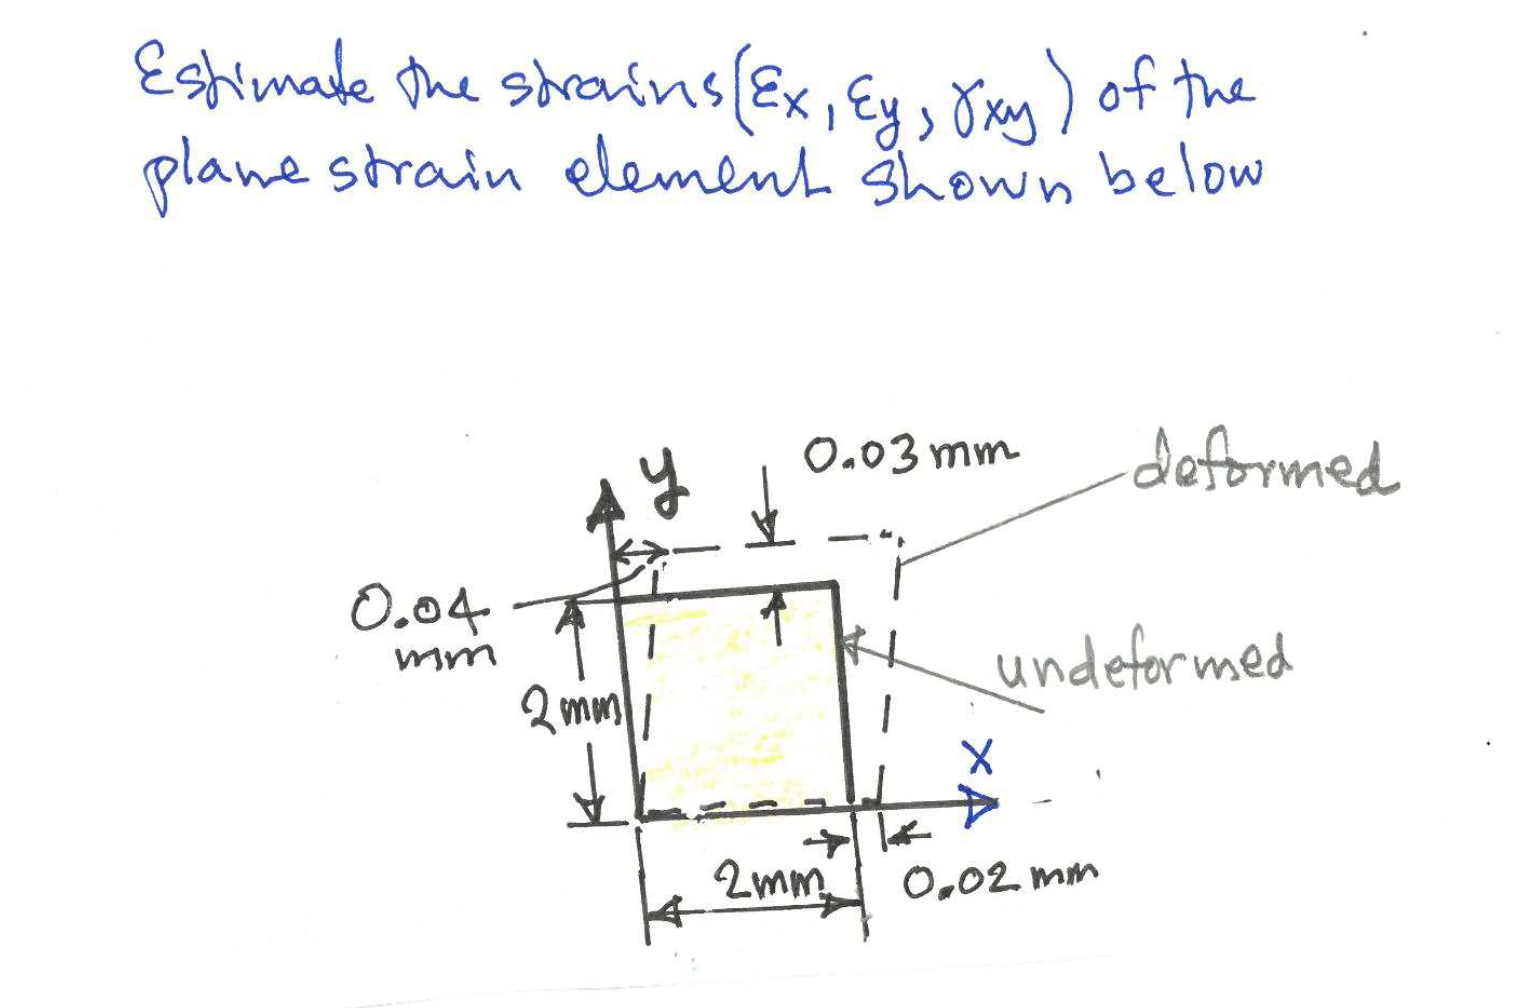 Estimate the strains (εx, εy, γxy) of the
plane strain element shown below
0.03 mm
y
deformed
0.04
mm
undeformed
2mm
x
2mm
0.02 mm